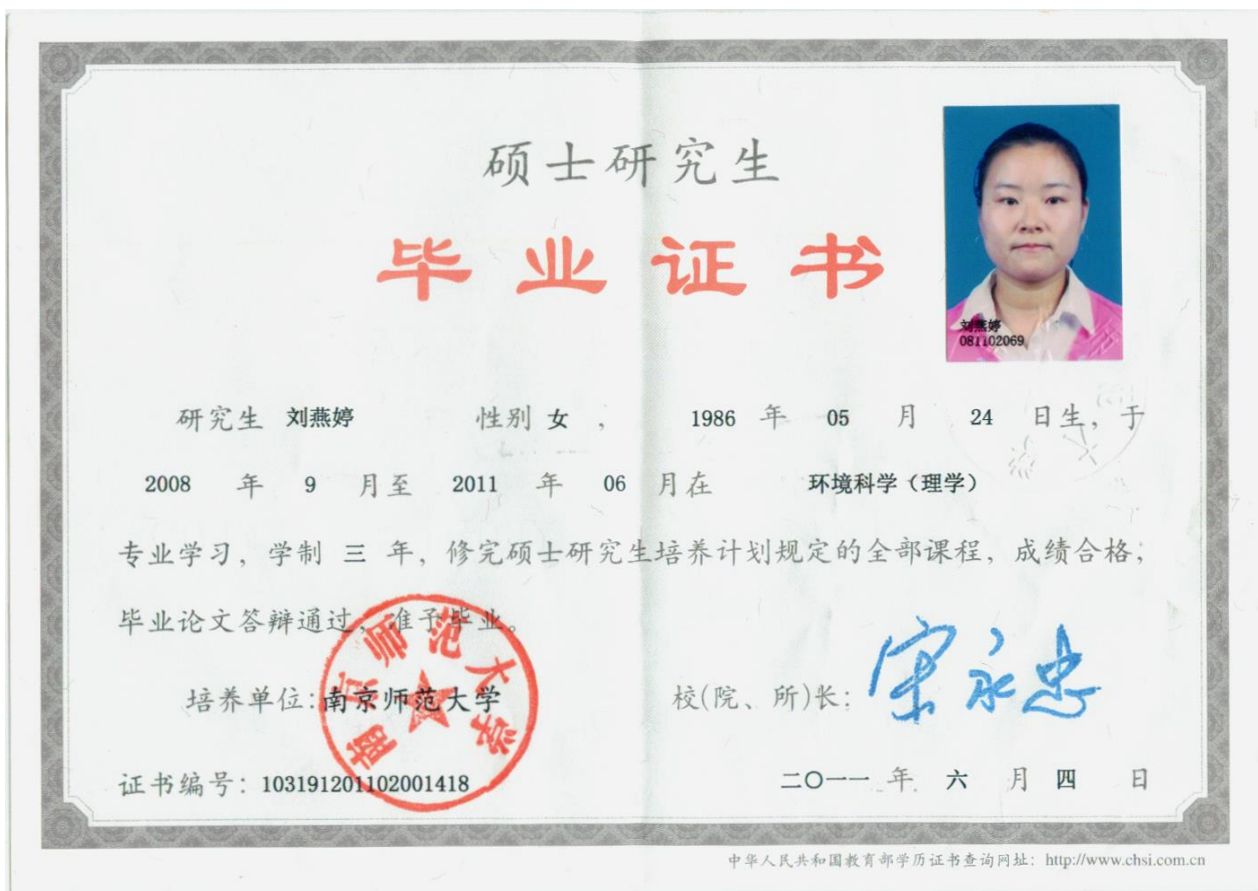 硕士研究生
毕业证书
刘燕婷
081102069
研究生 刘燕婷 性别 女 ， 1986 年 05 月 24 日生，于
2008 年 9 月至 2011 年 06 月在 环境科学（理学）
专业学习，学制 三 年，修完硕士研究生培养计划规定的全部课程，成绩合格；
毕业论文答辩通过，准予毕业。
培养单位：南京师范大学
南京师范大学
校(院、所)长：宋永忠
证书编号：103191201102001418
二〇一一 年 六 月 四 日
中华人民共和国教育部学历证书查询网址：http://www.chsi.com.cn